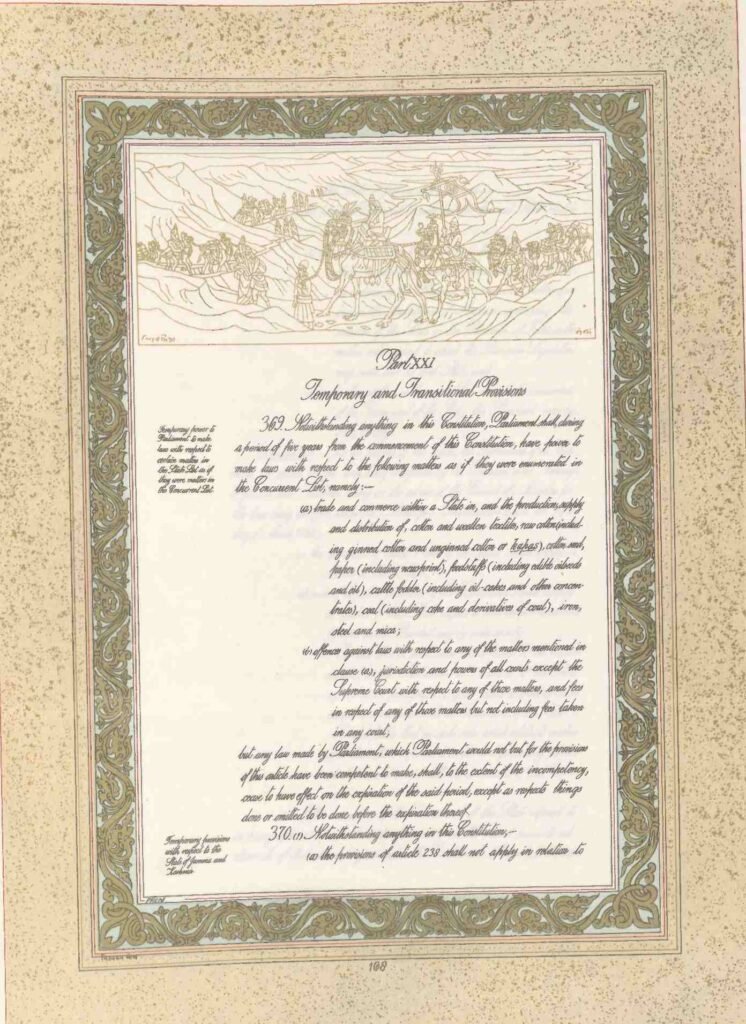 Part XXI
Temporary and Transitional Provisions
Temporary power to
Parliament to make
laws with respect to
certain matters in
the State List as if
they were matters in
the Concurrent List
369. Notwithstanding anything in this Constitution, Parliament shall, during
a period of five years from the commencement of this Constitution, have power to
make laws with respect to the following matters as if they were enumerated in
the Concurrent List, namely:—
(a) trade and commerce within a State in, and the production, supply
and distribution of, cotton and woollen textiles, raw cotton (includ
ing ginned cotton and unginned cotton or kapas), cotton seed,
paper (including newsprint), foodstuffs (including edible oilseeds
and oil), cattle fodder (including oil-cakes and other concen-
trates), coal (including coke and derivatives of coal), iron,
steel and mica;
(b) offences against laws with respect to any of the matters mentioned in
clause (a), jurisdiction and powers of all courts except the
Supreme Court with respect to any of those matters, and fees
in respect of any of those matters but not including fees taken
in any court;
but any law made by Parliament, which Parliament would not but for the provisions
of this article have been competent to make, shall, to the extent of the incompetency,
cease to have effect on the expiration of the said period, except as respects things
done or omitted to be done before the expiration thereof.
Temporary provisions
with respect to the
State of Jammu and
Kashmir
370. (1) Notwithstanding anything in this Constitution,—
(a) the provisions of article 238 shall not apply in relation to
168